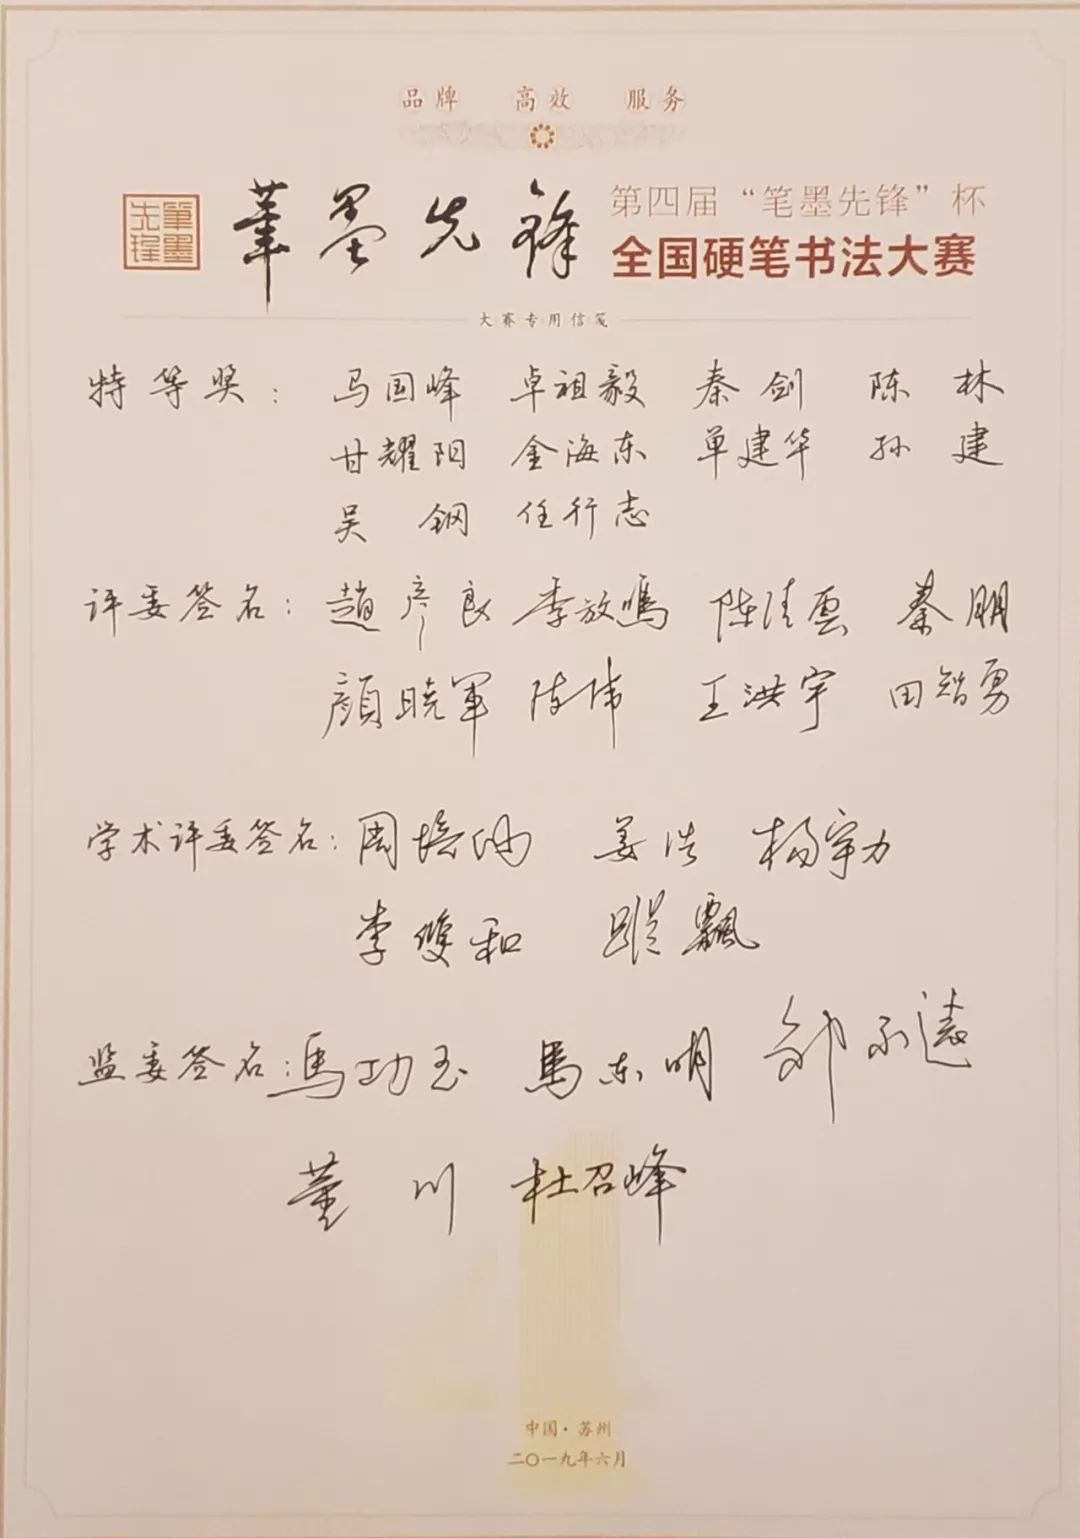 品牌 高效 服务
筆墨先鋒
筆墨先鋒
第四届“笔墨先锋”杯
全国硬笔书法大赛
大赛专用信笺
特等奖： 马国峰 卓祖毅 秦剑 陈林
甘耀阳 金海东 单建华 孙建
吴钢 任行志
评委签名： 趙彦良 李放鳴 陈清雲 秦朋
顔晓軍 陈伟 王洪宇 田智勇
学术评委签名： 周培纳 姜浩 杨宇力
李雙和 蹤飄
监委签名： 馬功玉 馬东明 邹不遠
董川 杜召峰
中国·苏州
二〇一九年六月